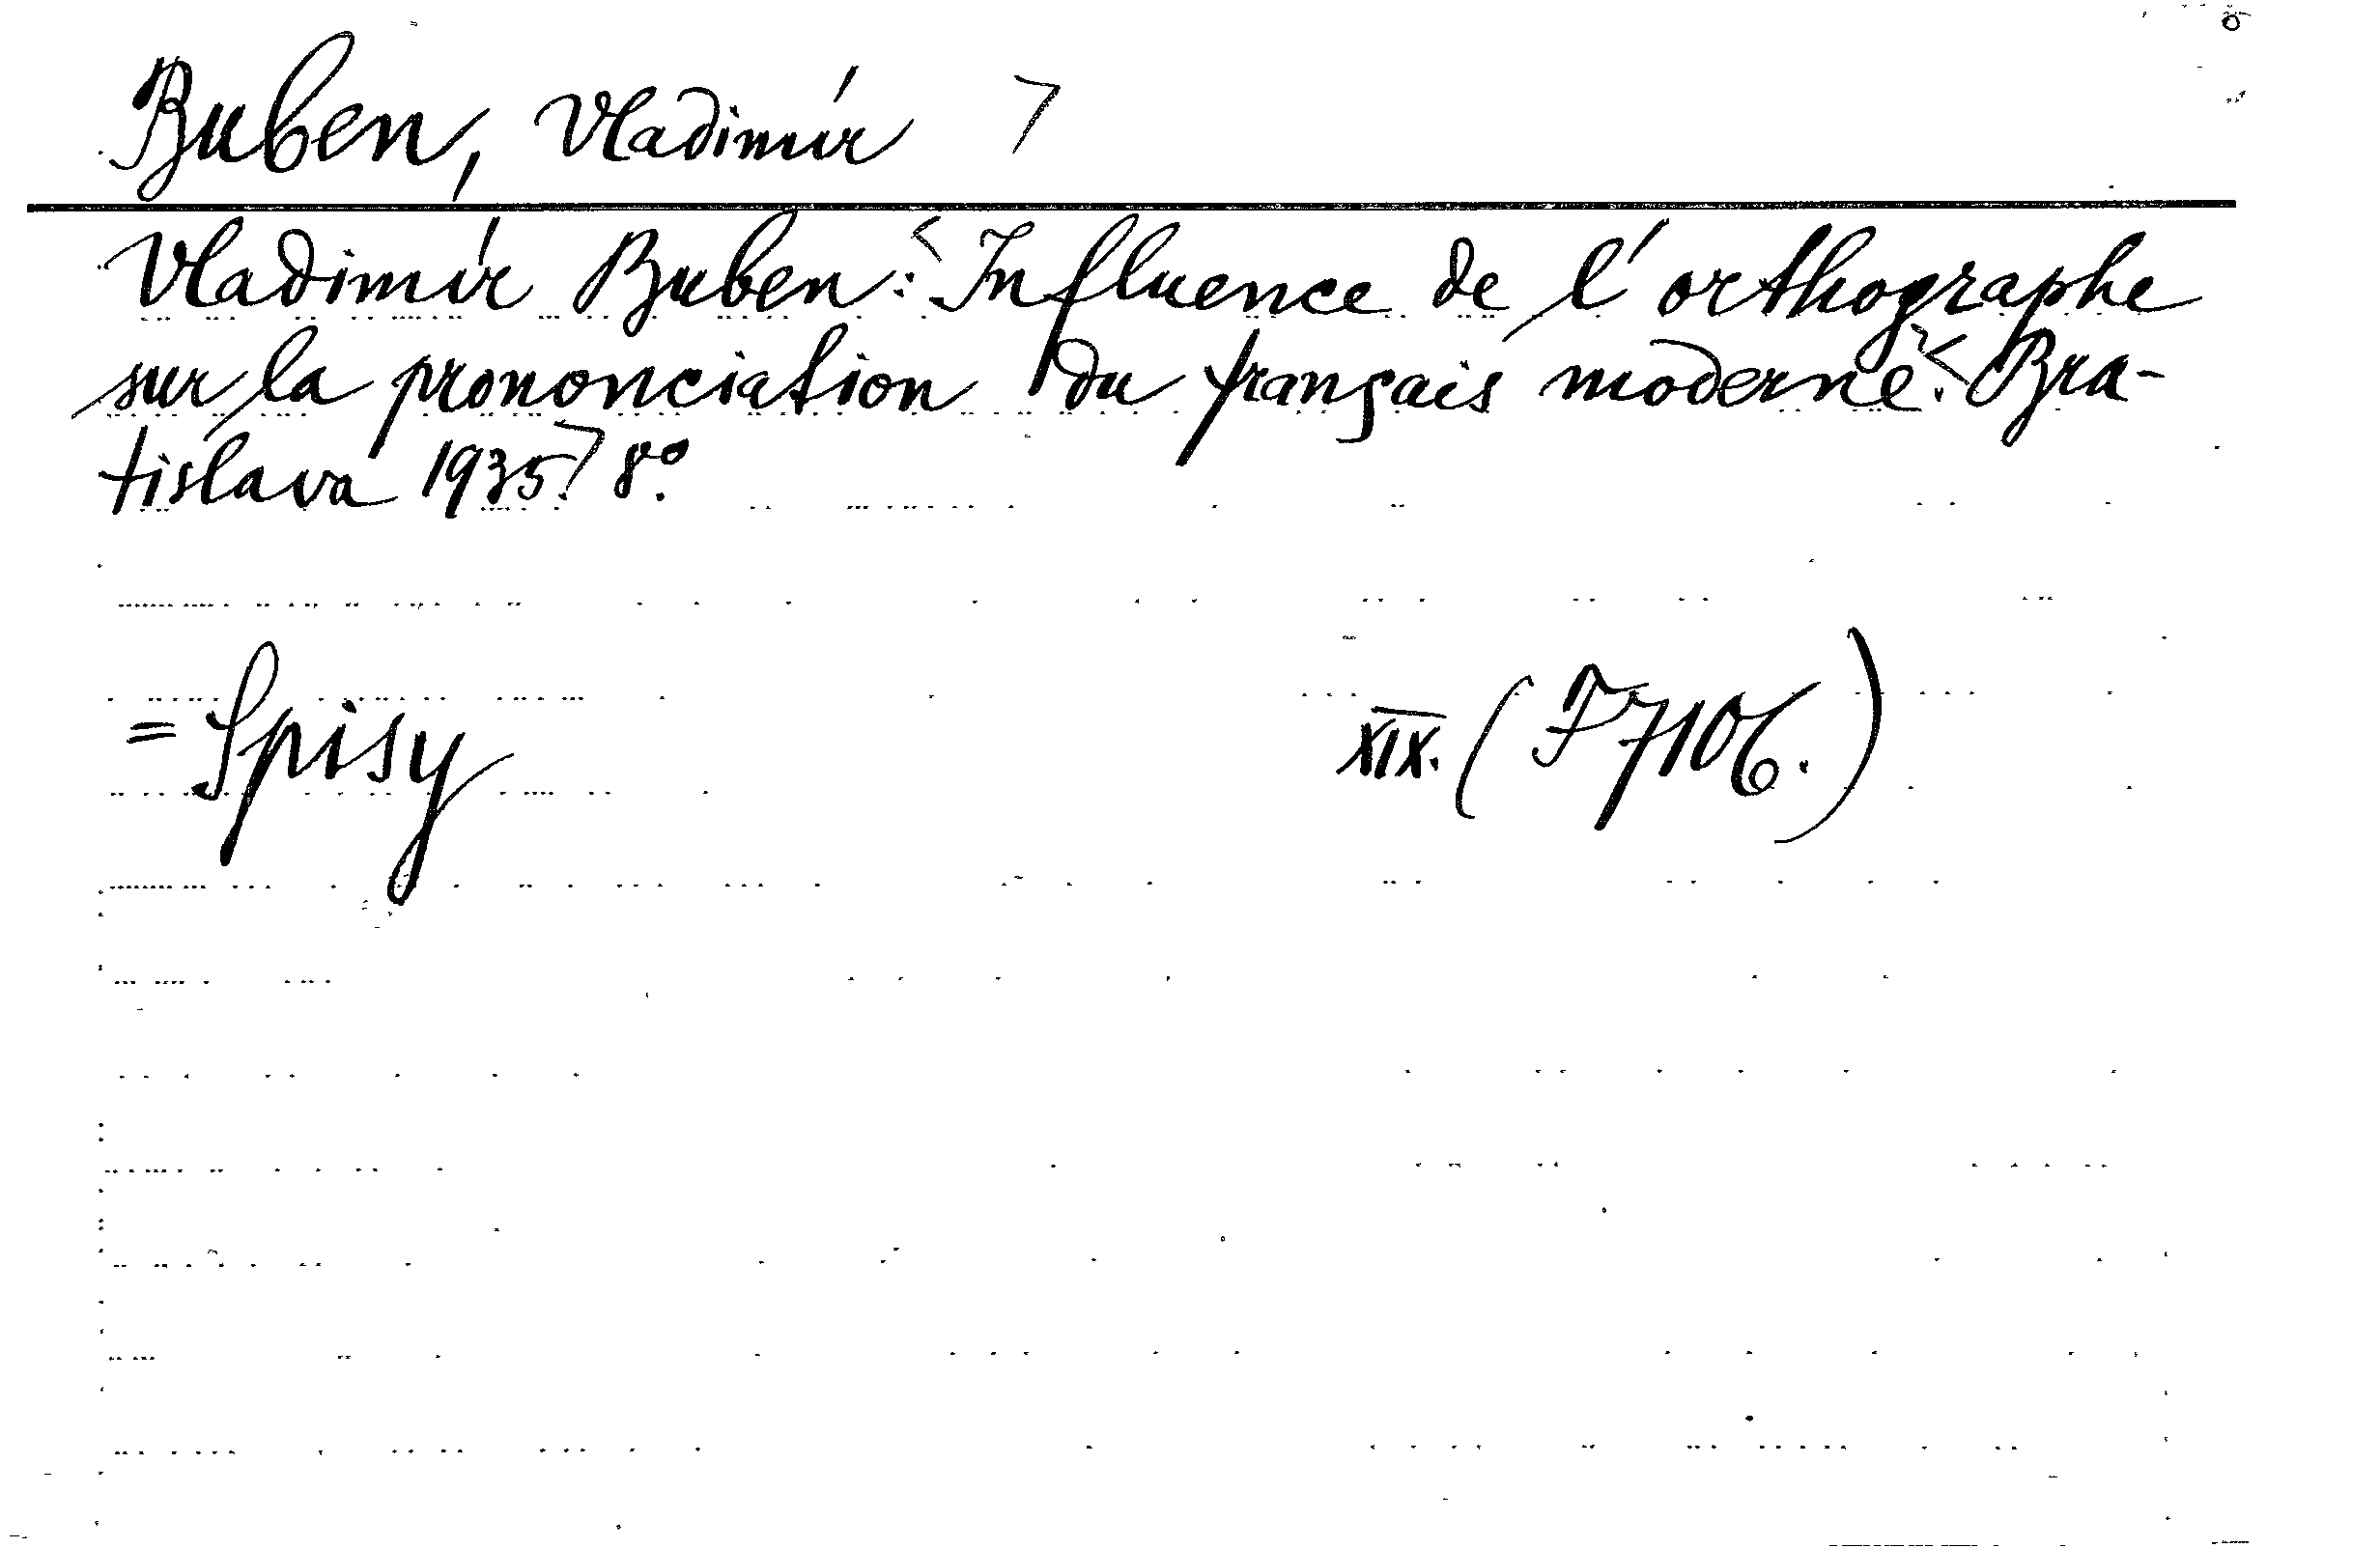 Buben, Vladimír >
Vladimír Buben: < Influence de l'orthographe
sur la prononciation du français moderne. < Bra-
tislava 1935. > 8°.
= Spisy XIX. (F 7106.)